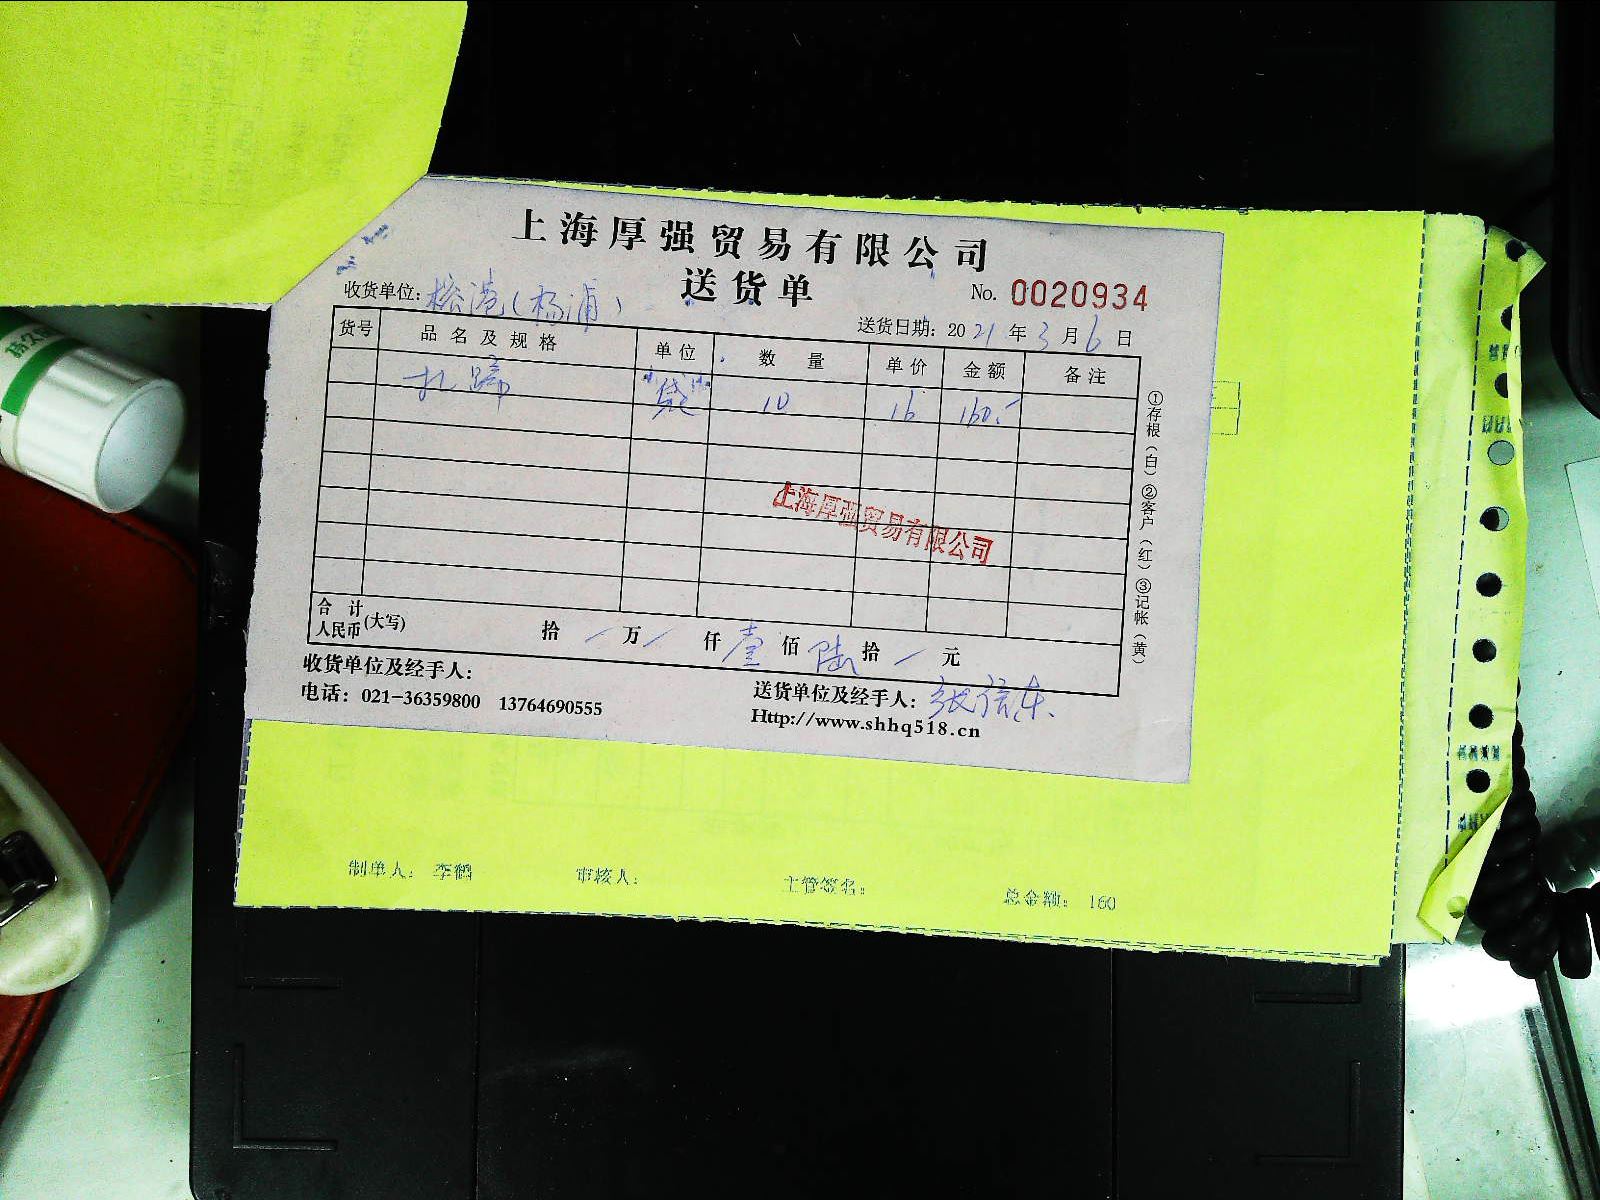 上海厚强贸易有限公司
送货单
No. 0020934
收货单位:榕港(杨浦)
送货日期: 2021年3月6日
货号 品名及规格 单位 数量 单价 金额 备注
扎蹄 袋 10 16 160.-
上海厚强贸易有限公司
合计人民币(大写) 拾 / 万 / 仟 壹 佰 陆 拾 / 元
①存根(白)②客户(红)③记帐(黄)
收货单位及经手人:
送货单位及经手人:
电话: 021-36359800 13764690555
Http://www.shhq518.cn
制单人: 李鹤 审核人: 主管签名: 总金额: 160